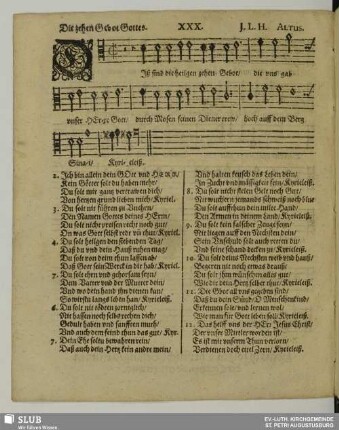 Die zehen Gebot Gottes. XXX. J. L. H. ALTUS.
DIß sind die heilgen zehen Gebot/ die vns gab
vnser HErre Gott/ durch Mosen seinen Diener trew/ hoch auff dem Berg
Sinai/ Kyrieleiß.
2. Ich bin allein dein GOtt vnd HErr/
Kein Götter solt du haben mehr/
Du solt mir gantz vertrawen dich/
Von hertzen grund lieben mich/ Kyriel.
3. Du solt nit führen zu Vnehrn/
Den Namen Gottes deines HErrn/
Du solt nicht preisen recht noch gut/
On was Gott selbst redt vñ thut/ Kyriel.
4. Du solt heilgen den siebenden Tag/
Daß du vnd dein Hauß ruhen mag/
Du solt von deim thun lassen ab/
Daß Gott sein Werck in dir hab/ Kyriel.
5. Du solt ehrn vnd gehorsam seyn/
Dem Vatter vnd der Mutter dein/
Vnd wo dein hand ihn dienen kan/
So wirstu langs lebn han/ Kyrieleiß.
6. Du solt nit tödten zorniglich/
Nit hassen noch selbs rechen dich/
Gedult haben vnd sanfften muth/
Vnd auch dem feind thun das gut/ Kyr.
7. Dein Ehe soltu bewahren rein/
Daß auch dein Hertz kein andre mein/
Vnd halten keusch das Leben dein/
In Zucht vnd mässigkeit fein/ Kyrieleiß.
8. Du solt nicht stelen Gelt noch Gut/
Nit wuchern jemands schweiß noch blut
Du solt auffthun dein milte Hand/
Den Armen in deinem Land/ Kyrieleiß.
9. Du solt kein falscher Zeuge seyn/
Nit liegen auff den Nechsten dein/
Sein Vnschuld solt auch retten du/
Vnd seine schand decken zu/ Kyrieleiß.
10. Du solt deins Nechsten weib vnd hauß/
Begeren nit noch etwas drauß/
Du solt ihm wünschen alles gut/
Wie dir dein Hertz selber thut/ Kyrieleiß.
11. Die Gebot all vns gegeben sind/
Daß du dein Sünd/ O Menschenkind
Erkennen solt/ vnd lernen wol
Wie man für Gott leben soll/ Kyrieleiß.
12. Das helff vns der HErr Jesus Christ/
Der vnser Mittler worden ist/
Es ist mit vnserm Thun verlorn/
Verdienen doch eitel Zorn/ Kyrieleiß.
SLUB
Wir führen Wissen.
EV.-LUTH. KIRCHGEMEINDE
ST. PETRI AUGUSTUSBURG